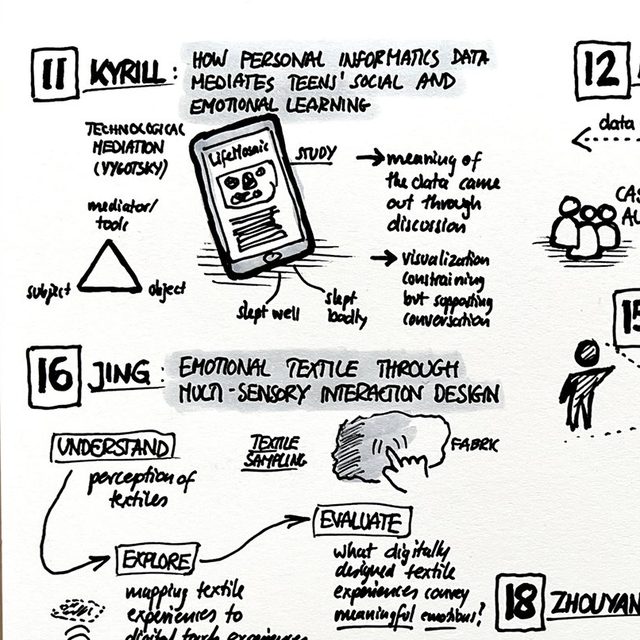 11 KYRILL:
HOW PERSONAL INFORMATICS DATA
MEDIATES TEENS' SOCIAL AND
EMOTIONAL LEARNING
TECHNOLOGICAL
MEDIATION
(VYGOTSKY)
mediator/
tools
subject
object
LifeMosaic
slept well
slept
badly
STUDY
→ meaning of
the data came
out through
discussion
→ visualization
constraining
but supporting
conversation
12
data
15
16 JING:
EMOTIONAL TEXTILE THROUGH
MULTI-SENSORY INTERACTION DESIGN
UNDERSTAND
perception of
textiles
TEXTILE
SAMPLING
FABRIC
EXPLORE
mapping textile
experiences to
digital touch experiences
EVALUATE
what digitally
designed textile
experiences convey
meaningful emotions?
18 ZHOUYAN